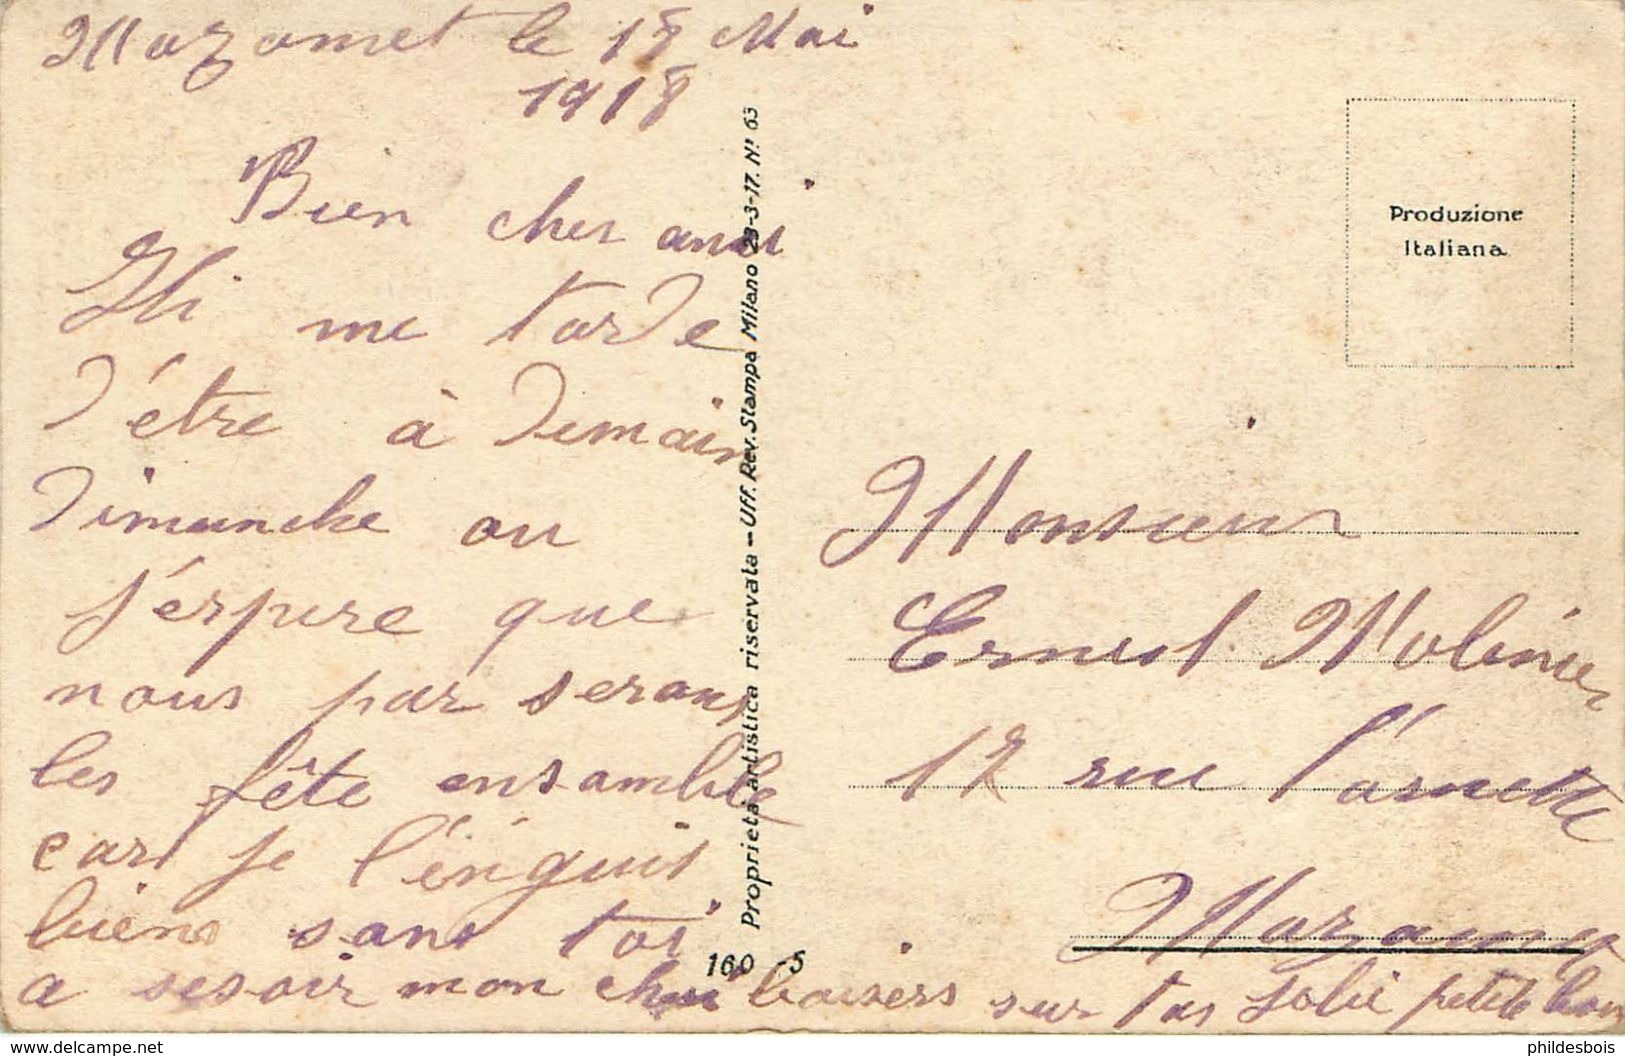 Mazamet le 18 Mai
1918
Bien cher ami
Ili me tarde
d'être à demain
dimanche ou
j'érpere que
nous par serons
les fête ensamble
car je l'énguis
biens sans toi
a sesoir mon cheri baisers sur tas jolie petite bou
160 - 5
Proprietà artistica riservata - Uff. Rev. Stampa Milano 23-3-17. N! 63
Produzione
Italiana
Monsieur
Ernest Molinier
12 rue l'arnette
Mazamet
delcampe.net
phildesbois